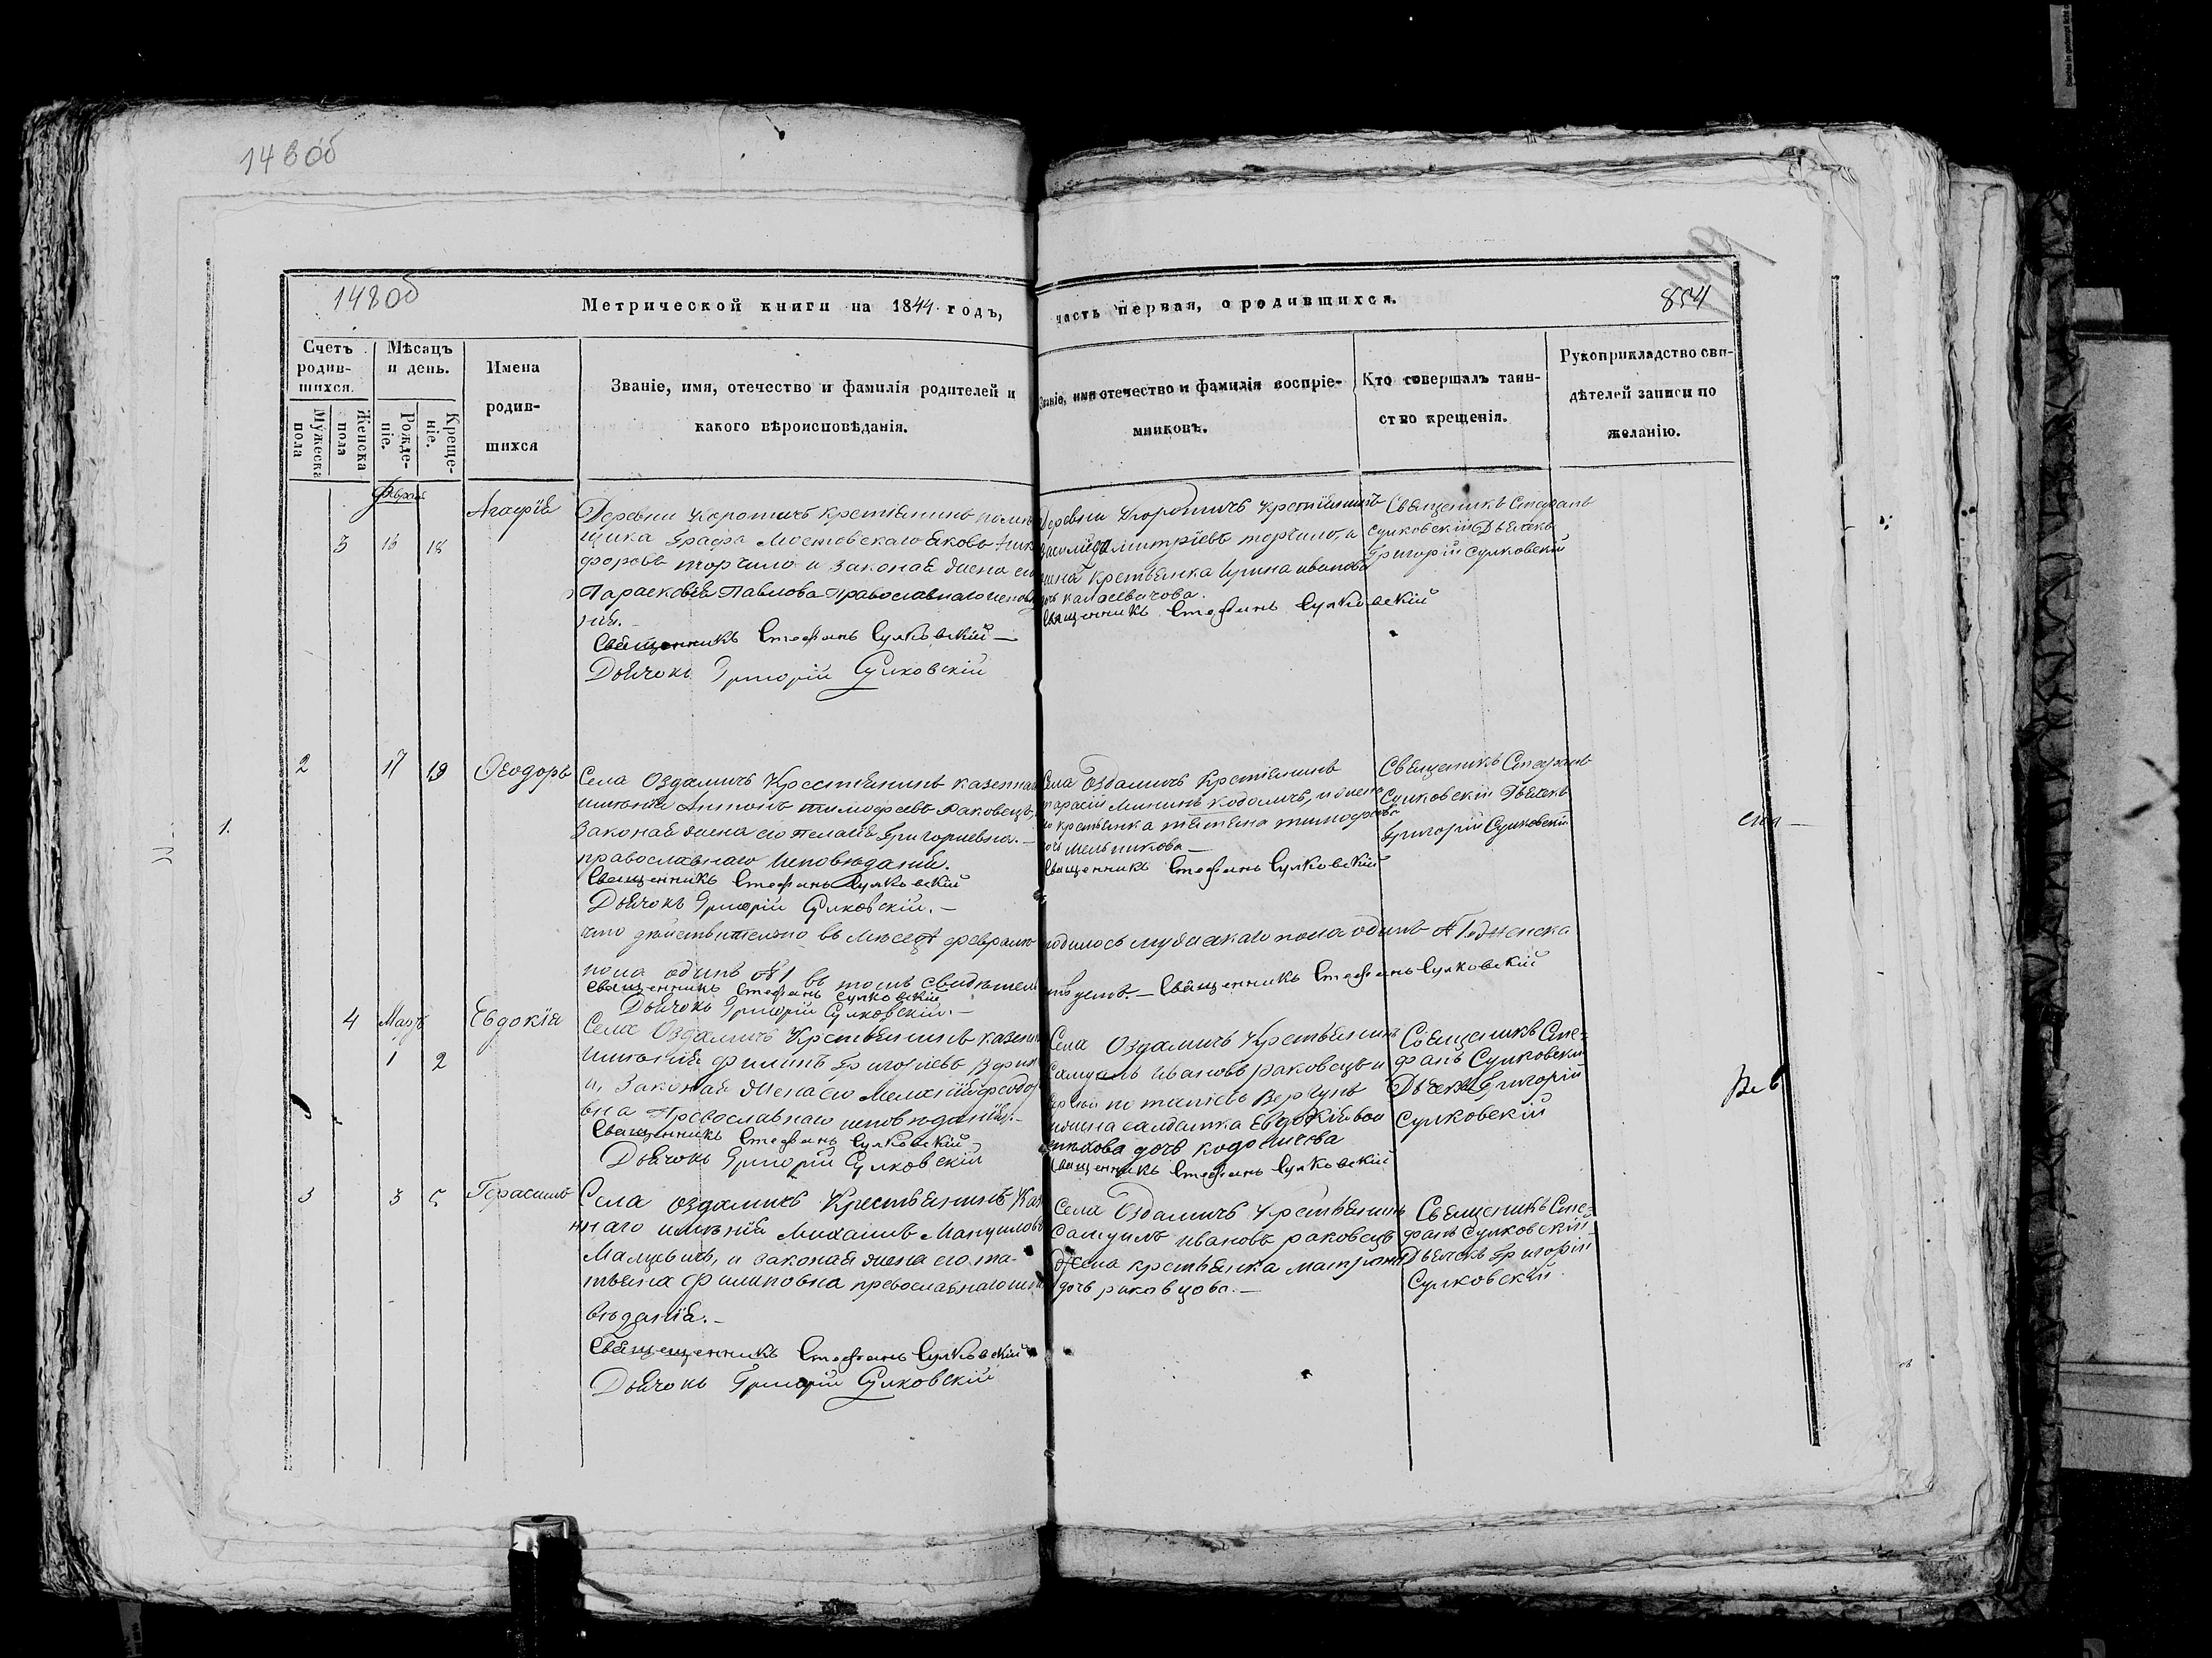 148об
148об
Метрической книги на 1844 годъ,
часть первая, о родившихся.
854
Счетъ родив-
шихся.
Мѣсяцъ
и день.
Имена
родив-
шихся
Званіе, имя, отечество и фамилія родителей и
какого вѣроисповѣданія.
Мужеска пола
Женска пола
Рожде-
ніе.
Креще-
ніе.
Званіе, имя отечество и фамилія воспріе-
мниковъ.
Кто совершалъ таин-
ство крещенія.
Рукоприкладство сви-
дѣтелей записи по
желанію.
3 16 18 Агафія
Деревни Коротичъ крестіянинъ помѣ
щика Графа Мостовскаго Яковъ Ник
форовъ торчило и законая жена его
Парасковія Павлова православнаго исповѣ
нія.
Священникъ Стефанъ Сулковскій
Дьячокъ Григорій Сулковскій
Деревни Коротичъ крестіянинъ
Василій Дмитріевъ торчило, и
крестьянка Ирина иванова
Священникъ Стефанъ Сулковскій
Священикъ Стефанъ
Сулковскій Дьячекъ
Григорій Сулковскій
2 17 19 Ѳеодоръ
Села Оздамичъ Крестіянинъ казенна
имѣнія Антонъ тимофеевъ Раковецъ,
Законая жена его Пелагія Григориевна.
православнаго Исповѣданія.
Священникъ Стефанъ Сулковскій
Дьячокъ Григорій Сулковскій.
Села Оздамичъ Крестіянинъ
тарасій Мининъ кодоличъ, и жена
крестьянка татіана тимофеева
дочь Мельникова
Священникъ Стефанъ Сулковскій
Священикъ Стефанъ
Сулковскій Дьячекъ
Григорій Сулковскій
что дѣйствительно въ Мѣсяцѣ февралѣ
родилось мужескаго пола одинъ №1 женска
пола одинъ №1 въ томъ свидѣтел
Священникъ Стефанъ Сулковскій
Священникъ Стефанъ Сулковскій
Дьячокъ Григорій Сулковскій.
4 Мартъ 1 2 Евдокія
Села Оздамичъ Крестьянинъ казен
имѣнія филипъ Григориевъ
и, Законая Жена его Меланія феодор
вна Православнаго исповѣданія.
Священникъ Стефанъ Сулковскій
Дьячокъ Григорій Сулковскій
Села Оздамичъ Крестьянинъ
Самуилъ Ивановъ раковецъ и
Вергунъ
салдатка Евдокія
дочь кодоличева
Священникъ Стефанъ Сулковскій
Священикъ Сте-
фанъ Сулковскій
Дьячекъ Григорій
Сулковскій
3 3 5 Герасимъ
Села Оздамичъ Крестьянинъ Каз
ннаго имѣнія Михаилъ Мануиловъ
Малцевичъ, и законая жена его та-
тьяна Филиповна православнаго испо
вѣданія.
Священникъ Стефанъ Сулковскій
Дьячокъ Григорій Сулковскій
Села Оздамичъ Крестьянинъ
Самуилъ Ивановъ раковецъ
Жена крестьянка
дочь раковцова.
Священикъ Сте-
фанъ Сулковскій
Дьячекъ Григорій
Сулковскій.